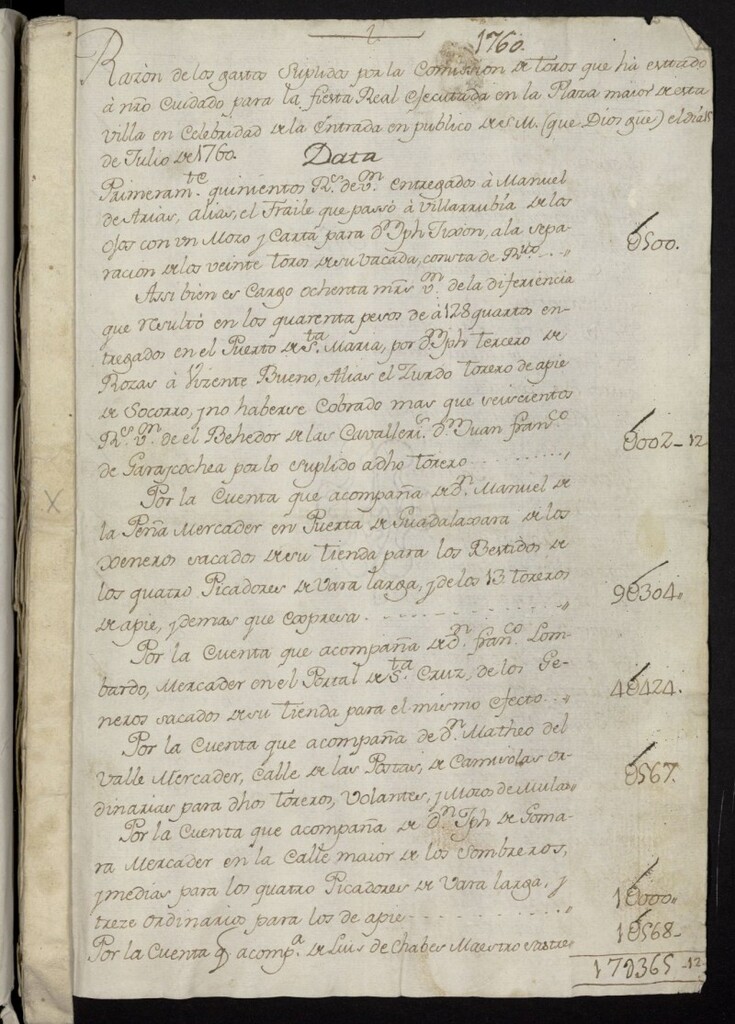 1760.
Razon de los gastos Suplidos por la Comision de toros que ha entrado
à nro Cuidado para la fiesta Real Ejecutada en la Plaza maior de esta
villa en Celebridad de la Entrada en publico de S.M. (que Dios gue) el dia 15
de Julio de 1760. Data
Primeramte. quinientos Rs. de vn. entregados à Manuel
de Arias, alias, el Fraile que passò à Villarrubia de los
Ojos con un Mozo y Carta para Dn. Jph Jixon, a la sepa- 0500.
racion de los veinte toros de su vacada, consta de Rvo.
Assi bien es Cargo ochenta mrs vn. de la diferiencia
que resultò en los quarenta pesos de à 128 quartos en-
tregados en el Puerto de Sta. Maria, por Dn. Jph tercero de
Rozas à Vizente Bueno, Alias el Zurdo torero de apie
de Socorro, y no haberse Cobrado mas que seiscientos
Rs. vn. de el Behedor de las Cavalleris. Dn. Juan Franco. 0002-12
de Garaycochea por lo suplido a dho torero
Por la Cuenta que acompaña de Dn. Manuel de
la Peña Mercader en Puerta de Guadalaxara de los
xeneros sacados de su tienda para los Bestidos de
los quatro Picadores de Vara larga, y de los 13 toreros 90304.
de apie, y demas que expresa.
Por la Cuenta que acompaña de Dn. Franco. Lom-
bardo, Mercader en el Portal de Sta. Cruz, de los Ge- 40424.
neros sacados de su tienda para el mismo efecto
Por la Cuenta que acompaña de Dn. Matheo del
Valle Mercader, Calle de las Postas, de Camisolas or- 0567.
dinarias para dhos toreros, Volantes, y Mozos de Mulas
Por la Cuenta que acompaña de Dn. Jph de Goma-
ra Mercader en la Calle maior de los Sombreros,
y medias para los quatro Picadores de Vara larga, y 10000
treze ordinarios para los de apie 10568-
Por la Cuenta q acompa. de Luis de Chabes Maestro sastre
179365-12